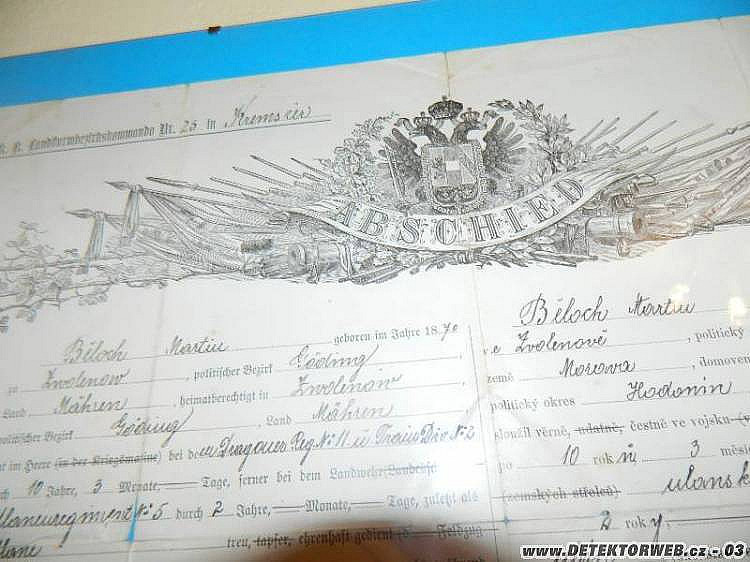 k. k. Landsturmbezirkskommando Nr. 25 in Kremsier
ABSCHIED
Běloch Martin geboren im Jahre 1870
zu Zwolenow, politischer Bezirk Göding
Land Mähren, heimatberechtigt in Zwolenow
politischer Bezirk Göding, Land Mähren
im Heere (in der Kriegsmarine) bei dem Dragoner Reg. No 11 u Train Div. No 2
10 Jahre, 3 Monate, — Tage, ferner bei dem Landwehr
Ulanenregiment No 5 durch 2 Jahre, — Monate, — Tage, zuletzt als
treu, tapfer, ehrenhaft gedient Feldzug
Běloch Martin
ve Zvolenově, politický
země Morava, domoven
politický okres Hodonín
sloužil věrně, udatně, čestně ve vojsku
po 10 roků 3 měsíc
(zemských střelců) ulansk
2 roky
www.DETEKTORWEB.cz - 03